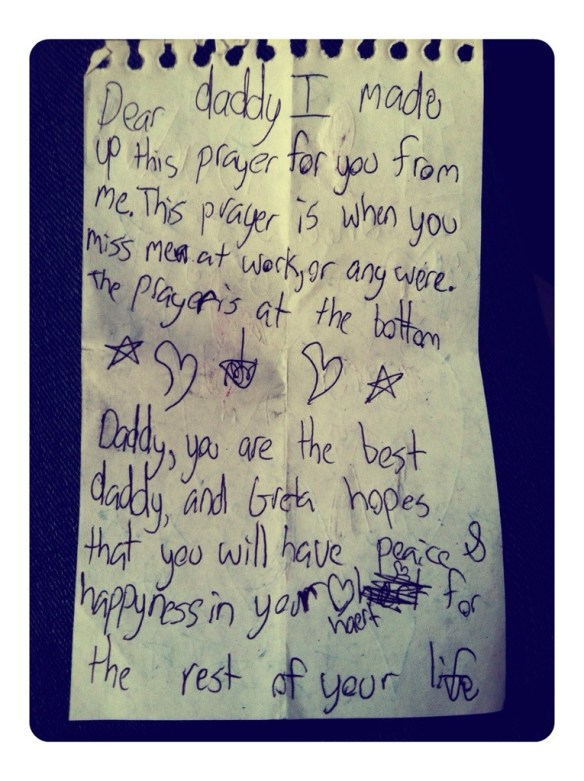 Dear daddy I made
up this prayer for you from
me. This prayer is when you
miss me at work, or any were.
the prayer is at the bottom
Daddy, you are the best
daddy, and Greta hopes
that you will have peaice &
happyness in your for
haert
the rest of your life